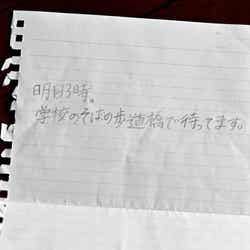 明日3時。
学校のそばの歩道橋で待ってます。